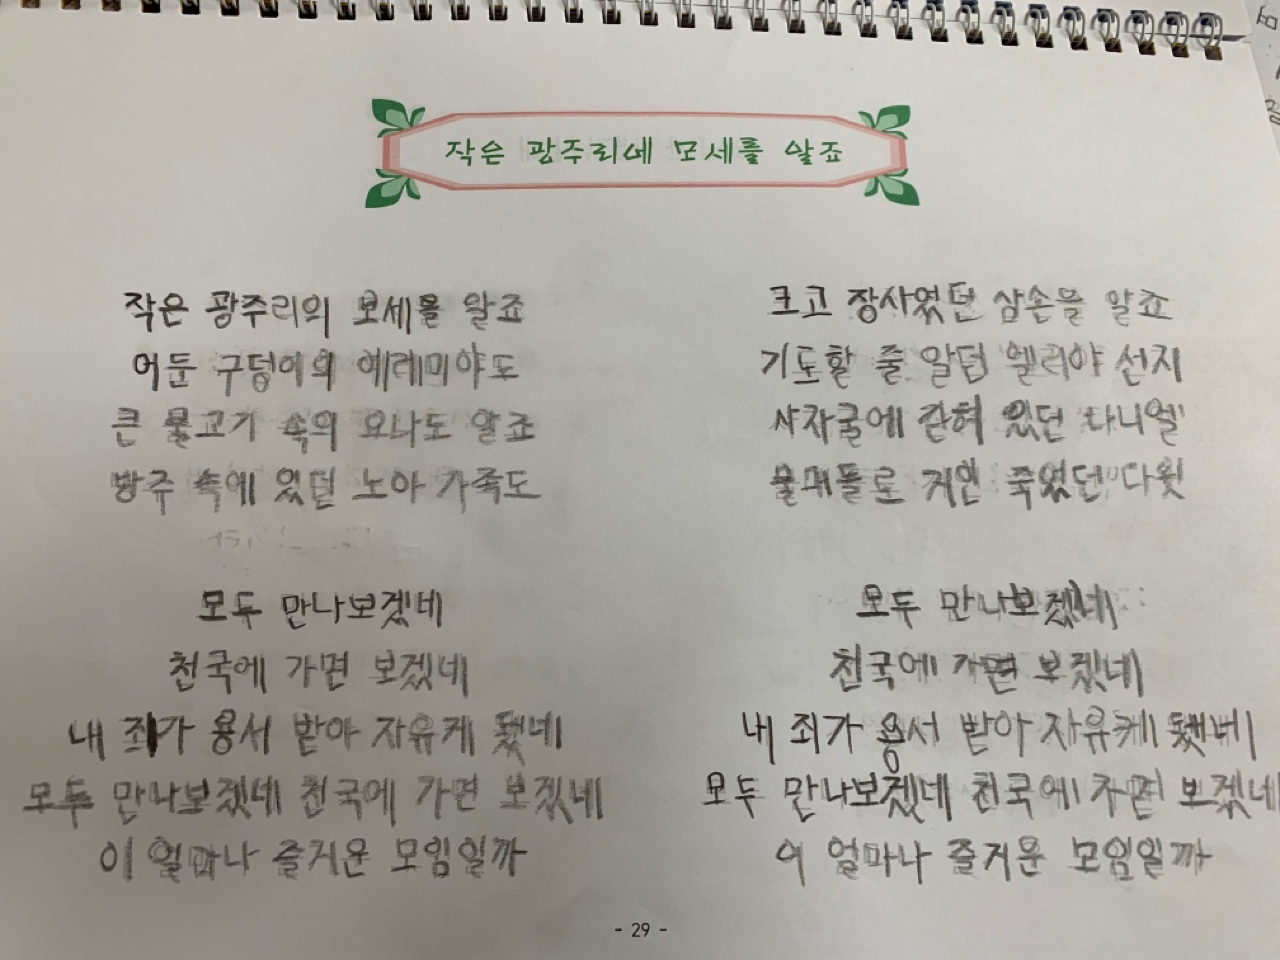 작은 광주리에 모세를 알죠
작은 광주리의 모세를 알죠
어둔 구덩이의 예레미야도
큰 물고기 속의 요나도 알죠
방주 속에 있던 노아 가족도
모두 만나보겠네
천국에 가면 보겠네
내 죄가 용서 받아 자유케 됐네
모두 만나보겠네 천국에 가면 보겠네
이 얼마나 즐거운 모임일까
크고 장사였던 삼손을 알죠
기도할 줄 알던 엘리야 선지
사자굴에 갇혀 있던 다니엘
물매돌로 거인 죽였던 다윗
모두 만나보겠네
천국에 가면 보겠네
내 죄가 용서 받아 자유케 됐네
모두 만나보겠네 천국에 가면 보겠네
이 얼마나 즐거운 모임일까
- 29 -